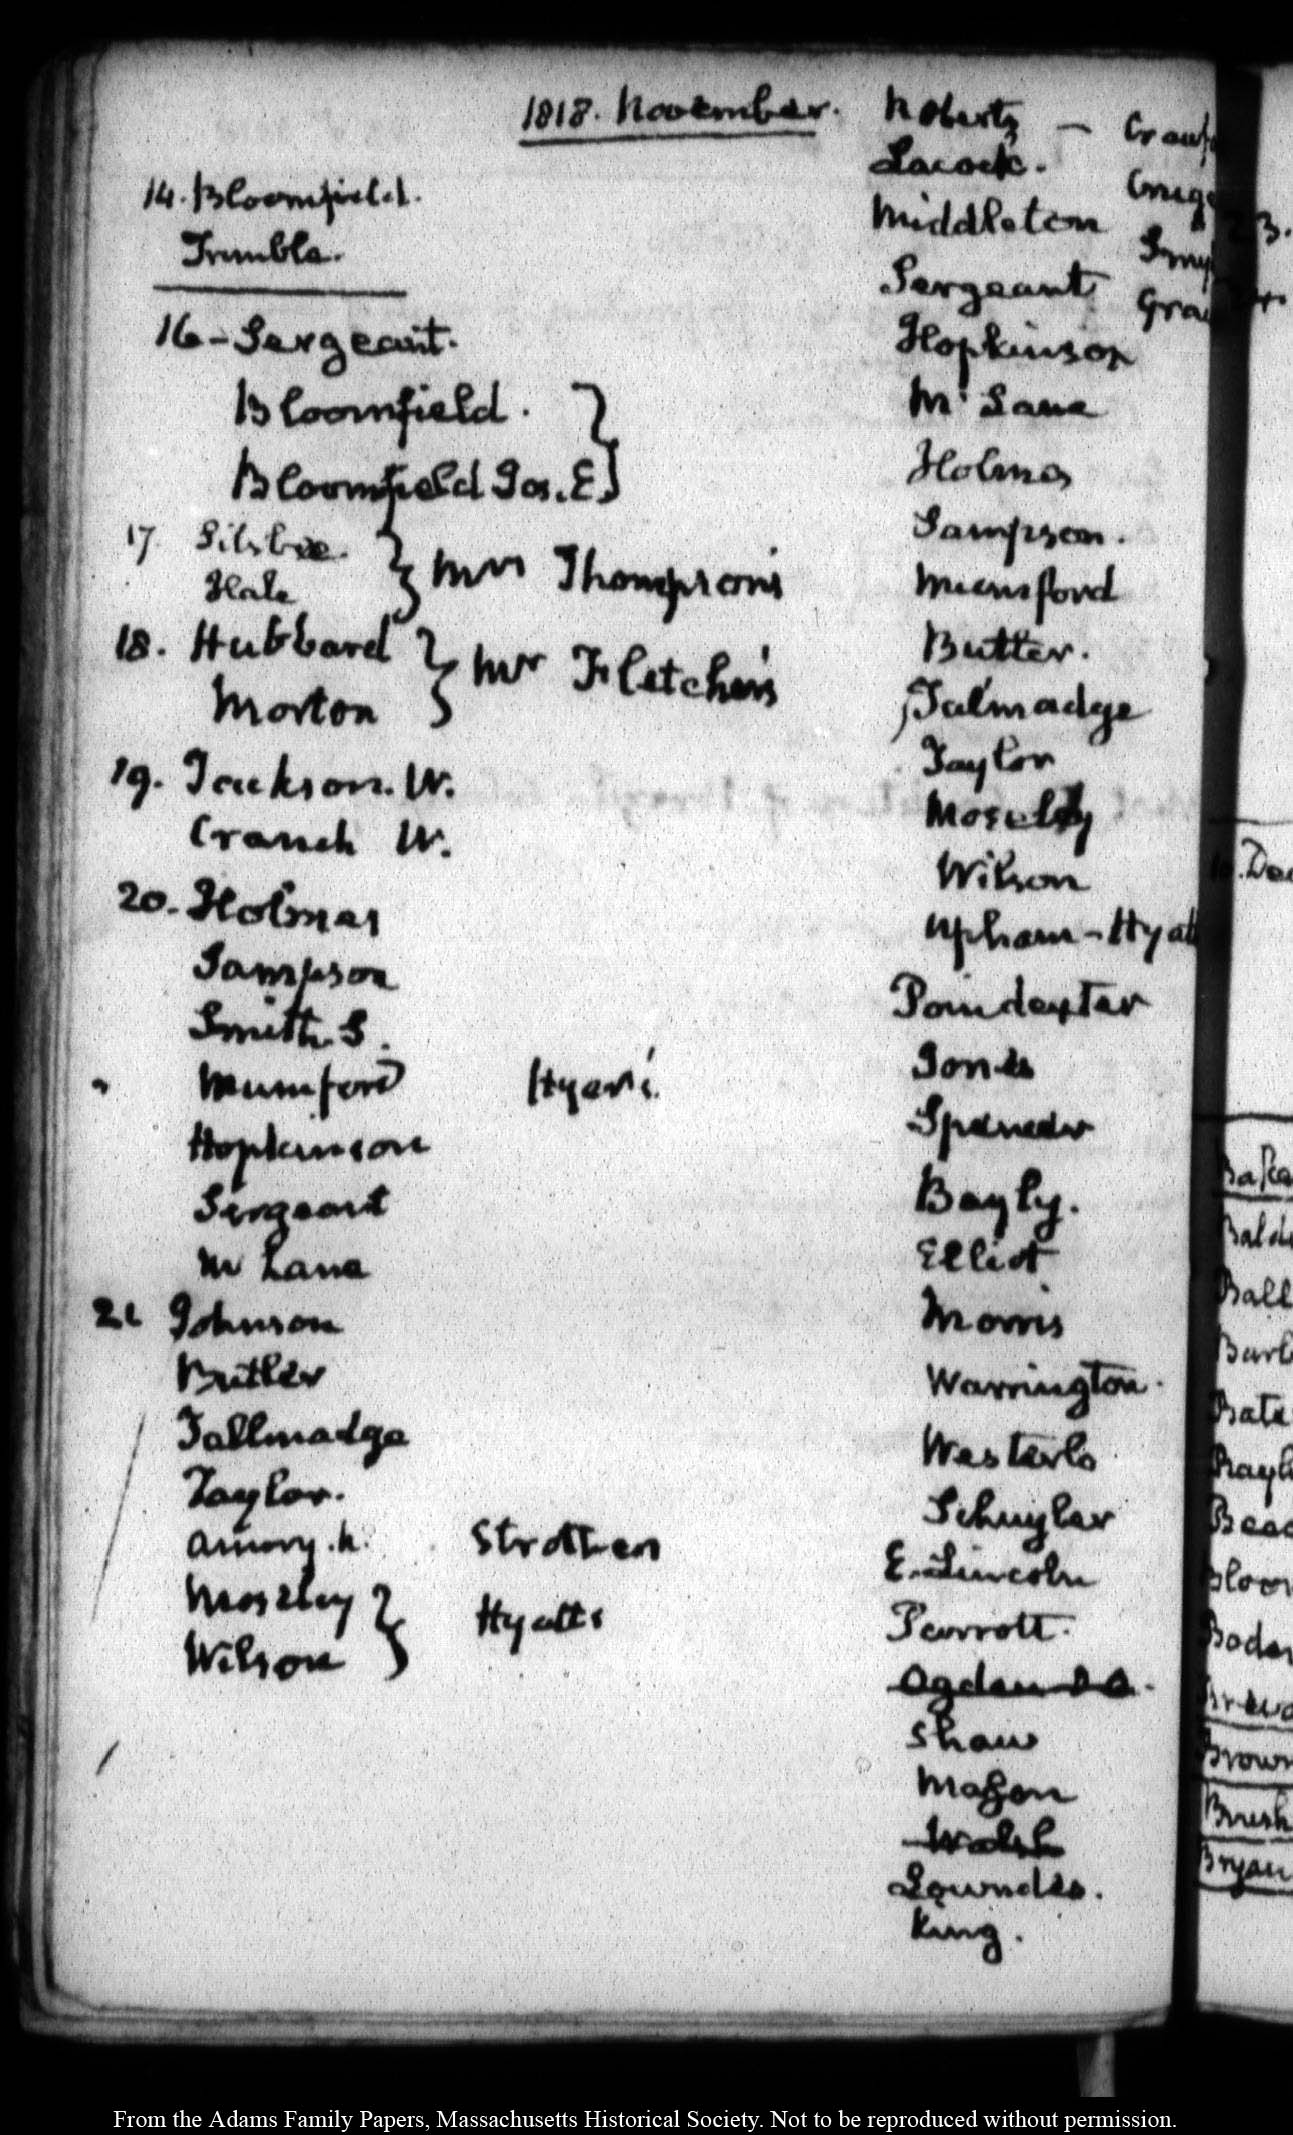 1818. November.
14. Bloomfield.
Trimble.
16 - Sergeant.
Bloomfield.
Bloomfield Jos. E.
17. Silsbee.
Hale
Mrs Thompson's
18. Hubbard
Morton
Mr Fletcher's
19. Jackson. W.
Cranch W.
20. Holmes
Sampson
Smith. S.
" Mumford Hyer's.
Hopkinson
Sergeant
Mc Lane
21 Johnson
Butler
Tallmadge
Taylor.
Amory. N. Strothers
Moseley
Wilson
Hyatts
Roberts -
Lacock.
Middleton
Sergeant
Hopkinson
Mc Lane
Holmes
Sampson.
Mumford
Butler.
Talmadge
Taylor
Mosely
Wilson
Upham - Hyatt
Poindexter
Jones
Spencer
Bayly.
Elliot
Morris
Warrington.
Westerlo
Schuyler
E. Lincoln
Parrott.
Ogden D A.
Shaw
Mason
Walsh
Lowndes.
King.
From the Adams Family Papers, Massachusetts Historical Society. Not to be reproduced without permission.